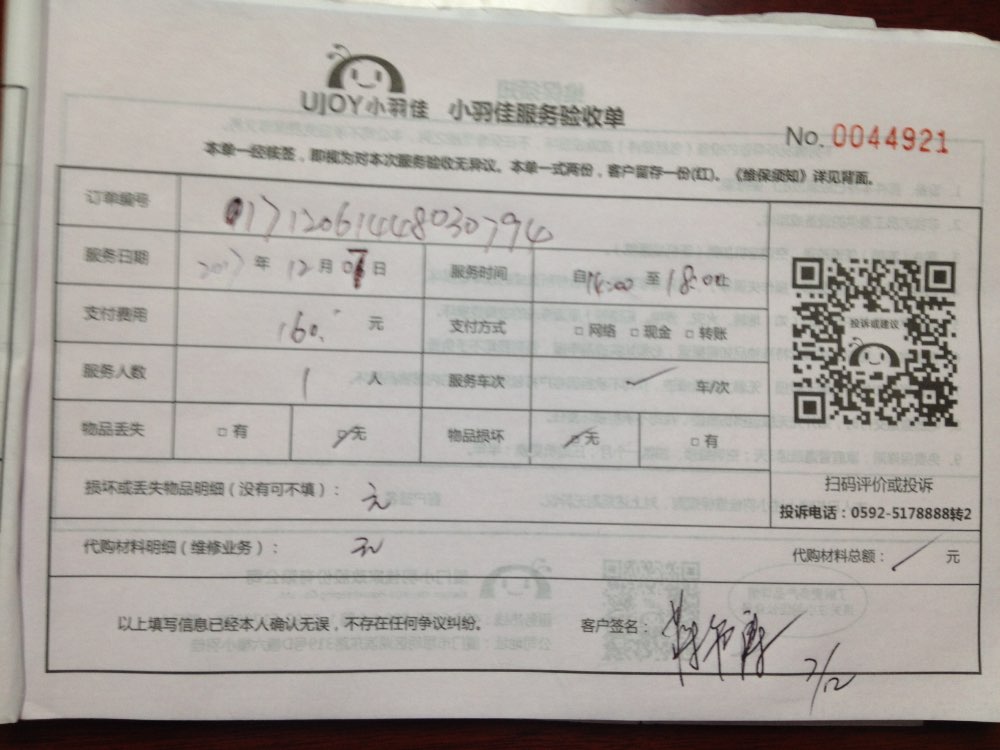 UJOY小羽佳 小羽佳服务验收单
No. 0044921
本单一经核签，即视为对本次服务验收无异议。本单一式两份，客户留存一份(红)。《维保须知》详见背面。
订单编号 01712061448030794
服务日期 2017 年 12 月 日 服务时间 自14:00 至 18:00止
投诉或建议
支付费用 160. 元 支付方式 □ 网络 □ 现金 □ 转账
服务人数 1 人 服务车次 车/次
物品丢失 □ 有 □ 无 物品损坏 □ 无 □ 有
损坏或丢失物品明细（没有可不填）： 无
扫码评价或投诉
投诉电话：0592-5178888转2
代购材料明细（维修业务）： 无 代购材料总额： 元
以上填写信息已经本人确认无误，不存在任何争议纠纷。 客户签名：
7/12